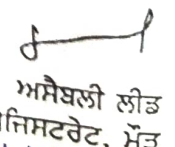 ਅਸੈਂਬਲੀ ਲੀਡ
ਜਿਸਟਰੇਟ, ਮੌੜ